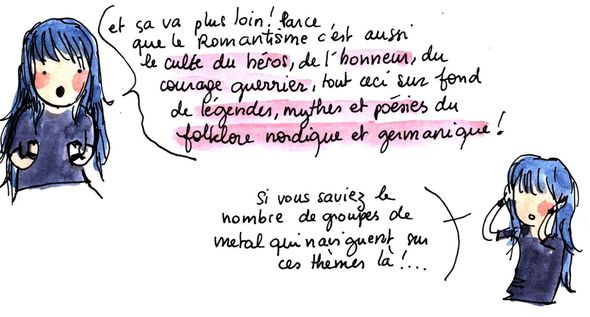 et ça va plus loin! Parce
que le Romantisme c'est aussi
le culte du héros, de l'honneur, du
courage guerrier, tout ceci sur fond
de légendes, mythes et poésies du
folklore nordique et germanique!
Si vous saviez le
nombre de groupes de
metal qui naviguent sur
ces thèmes là!...